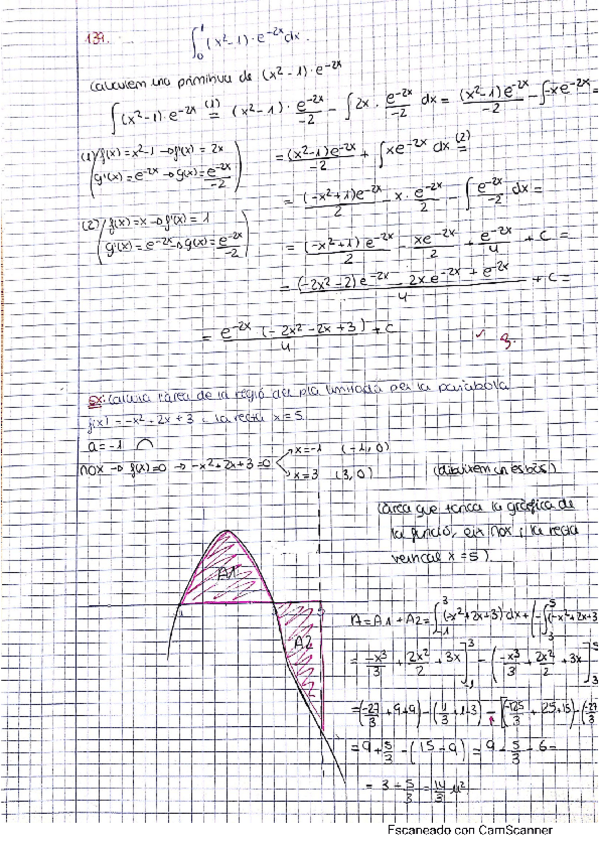 139. ∫₀¹ (x²-1)·e^-2x dx.
calculem una primitiva de (x²-1)·e^-2x
∫(x²-1)·e^-2x (1)= (x²-1)· e^-2x/-2 - ∫2x· e^-2x/-2 dx = (x²-1)e^-2x/-2 - ∫-xe^-2x =
(1) f(x)=x²-1 → f'(x) = 2x
g'(x)=e^-2x → g(x)= e^-2x/-2
= (x²-1)e^-2x/-2 + ∫xe^-2x dx (2)=
= (-x²+1)e^-2x/2 - x· e^-2x/2 - ∫e^-2x/-2 dx =
(2) f(x)=x → f'(x) = 1
g'(x)=e^-2x → g(x)= e^-2x/-2
= (-x²+1)e^-2x/2 - xe^-2x/2 + e^-2x/4 + c =
= (-2x²-2)e^-2x - 2x·e^-2x + e^-2x/4 + c =
= e^-2x (-2x²-2x+3)/4 + c
Ex: calcula l'àrea de la regió del pla limitada per la paràbola
f(x) = -x²+2x+3 i la recta x=5
a=-1
nox → f(x)=0 → -x²+2x+3=0
x=-1 (-1,0)
x=3 (3,0)
(dibuixem un esbós)
(àrea que tanca la gràfica de
la funció, eix nox i la recta
vertical x=5)
A1
A2
A=A1+A2= ∫₋₁³(-x²+2x+3)dx + (-∫₃⁵(-x²+2x+3
= -x³/3 + 2x²/2 + 3x]₋₁³ - (-x³/3 + 2x²/2 + 3x]₃⁵
=(-27/3+9+9) - (1/3+1-3) - [(-125/3+25+15)-(-27/3
= 9+5/3 - (15-9) = 9+5/3-6=
= 3+5/3 = 14/3 u²
Escaneado con CamScanner